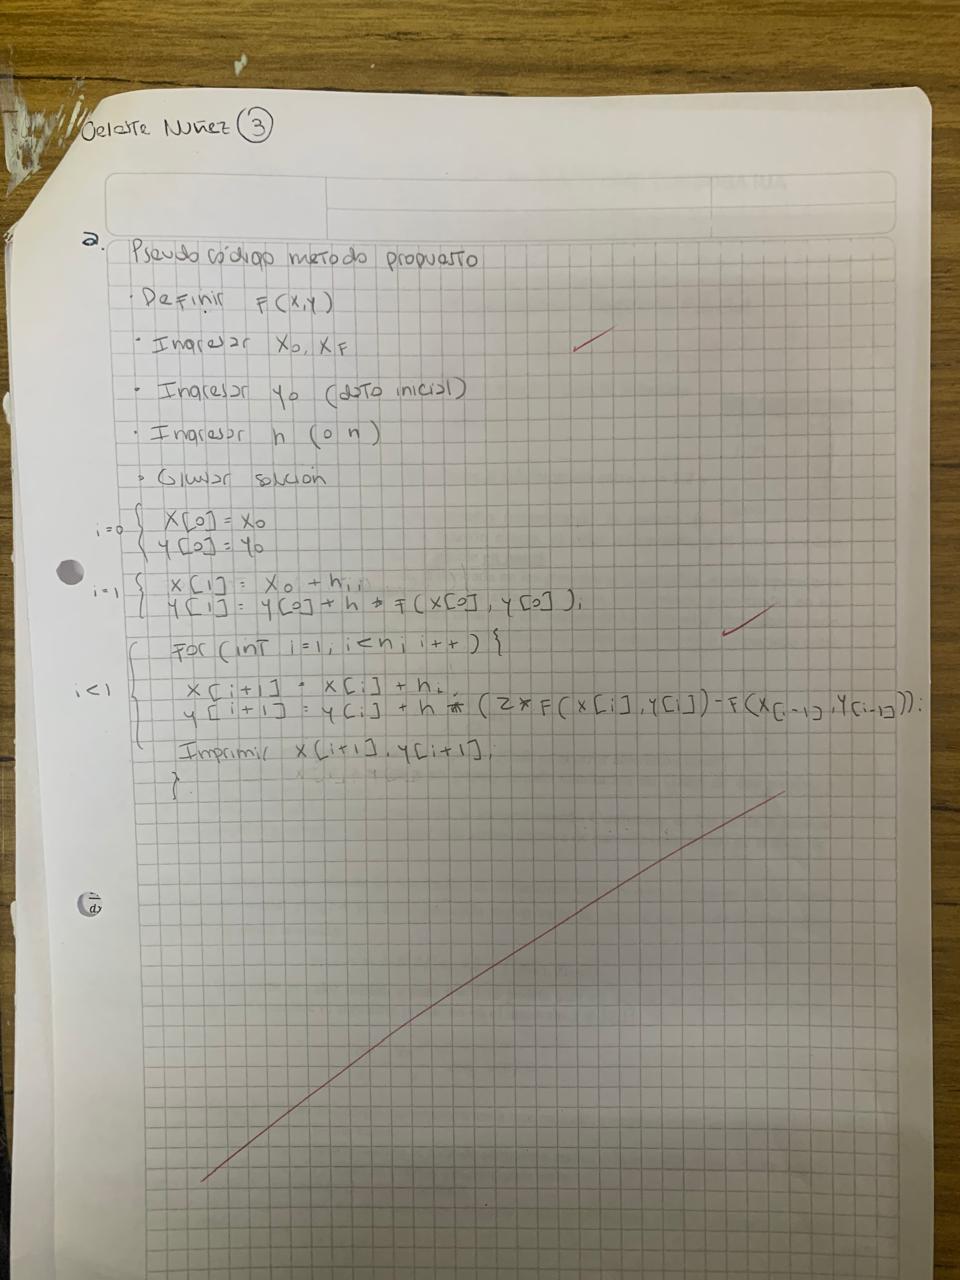 Celeste Nuñez 3
a. Pseudo código metodo propuesto
· Definir F(x,y)
· Ingresar x0, xF
· Ingresar y0 (dato inicial)
· Ingresar h (o n)
· solución
i=0 { x[0] = x0
y[0] = y0
i=1 { x[1] = x0 + h;
y[1] = y[0] + h * F(x[0], y[0]);
For (int i=1; i<n; i++) {
i<1 { x[i+1] = x[i] + h;
y[i+1] = y[i] + h * (2*F(x[i], y[i]) - F(x[i-1], y[i-1]));
Imprimir x[i+1], y[i+1];
}